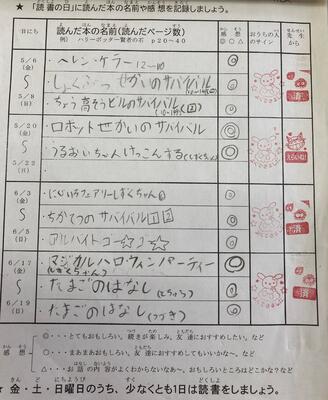 ★「読書の日」に読んだ本の名前や感想を記録しましょう。
日にち
読んだ本の名前(読んだページ数)
例) ハリーポッター賢者の石 p20~40
感想
◎ ○ △
おうちの人のサイン
先生から
5/6
(金)
・ヘレン・ケラー 12~10
◎
せかいのサバイバル
◎
5/8
(日)
・ちょう高そうビルのサバイバル
◎
5/20
(金)
・ロボットせかいのサバイバル
◎
・うるおいちゃんけっこんする
◎
5/22
(日)
6/3
(金)
・にじいろフェアリーしずくちゃん
◎
・ちかてつのサバイバル
◎
6/5
(日)
・アルバイトコー
◎
6/17
(金)
・マジカルハロウィンパーティー
(しずくちゃん)
◎
・たまごのはなし
◎
6/19
(日)
・たまごのはなし(つづき)
◎
感想
◎・・・とてもおもしろい。続きが楽しみ。友達におすすめしたい。など
○・・・まあまあおもしろい。友達におすすめしてもいいかな~。など
△・・・お話の内容がよくわからないなあ~。おもしろいところはどこかな?など
★ 金・土・日曜日のうち、少なくとも1日は読書をしましょう。